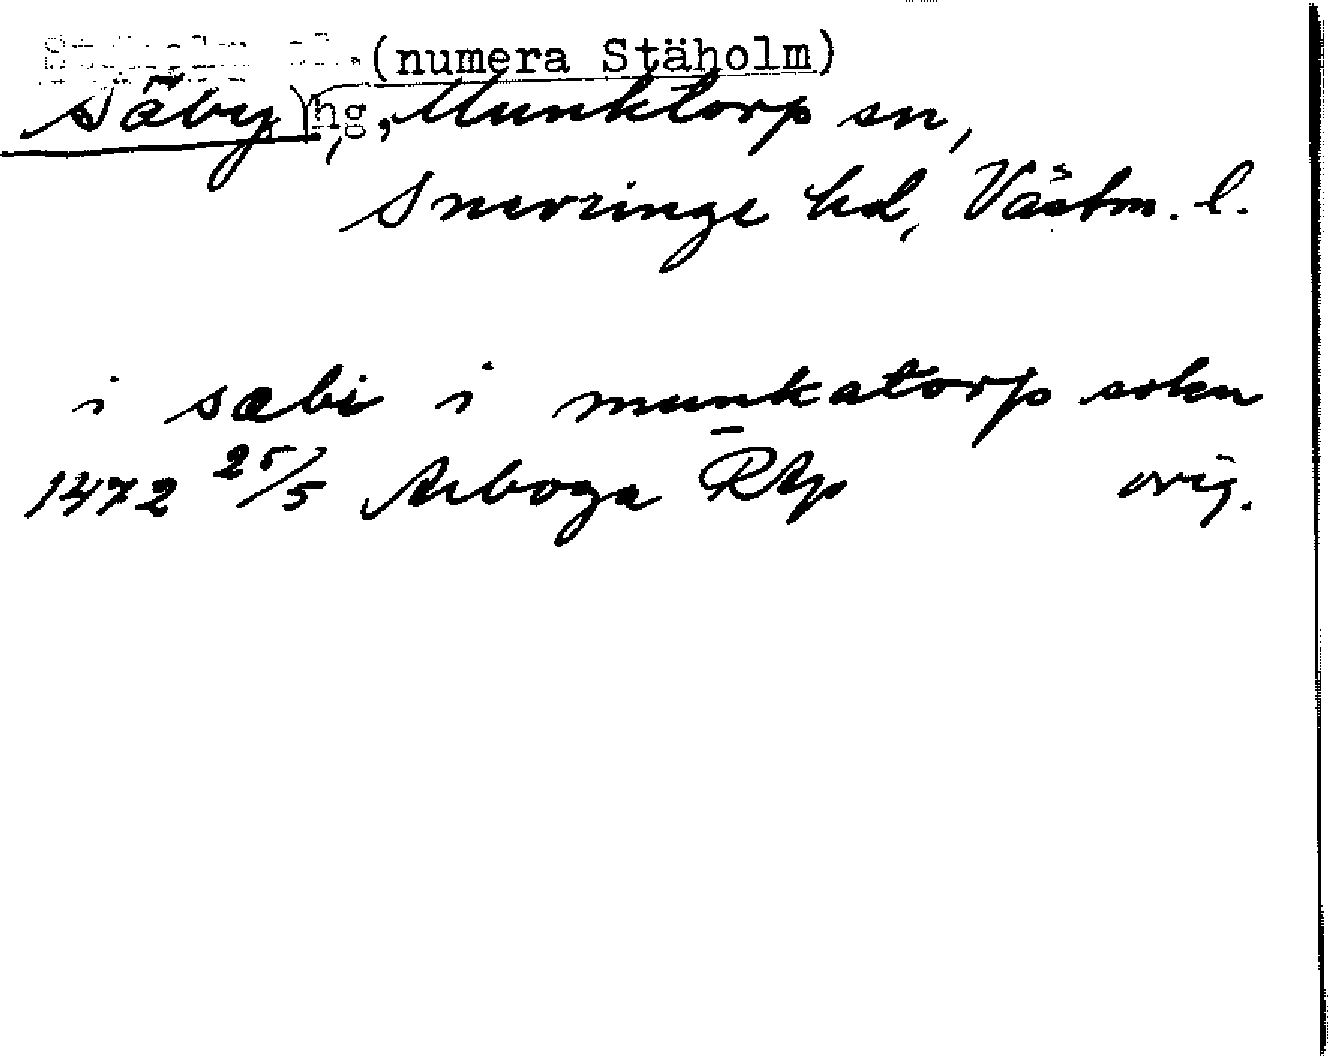 (numera Stäholm)
Säby hg, Munktorp sn,
Snevringe hd, Västm. l.
i sæbi i munkatorp sokn
1472 25/5 Arboga RAp orig.